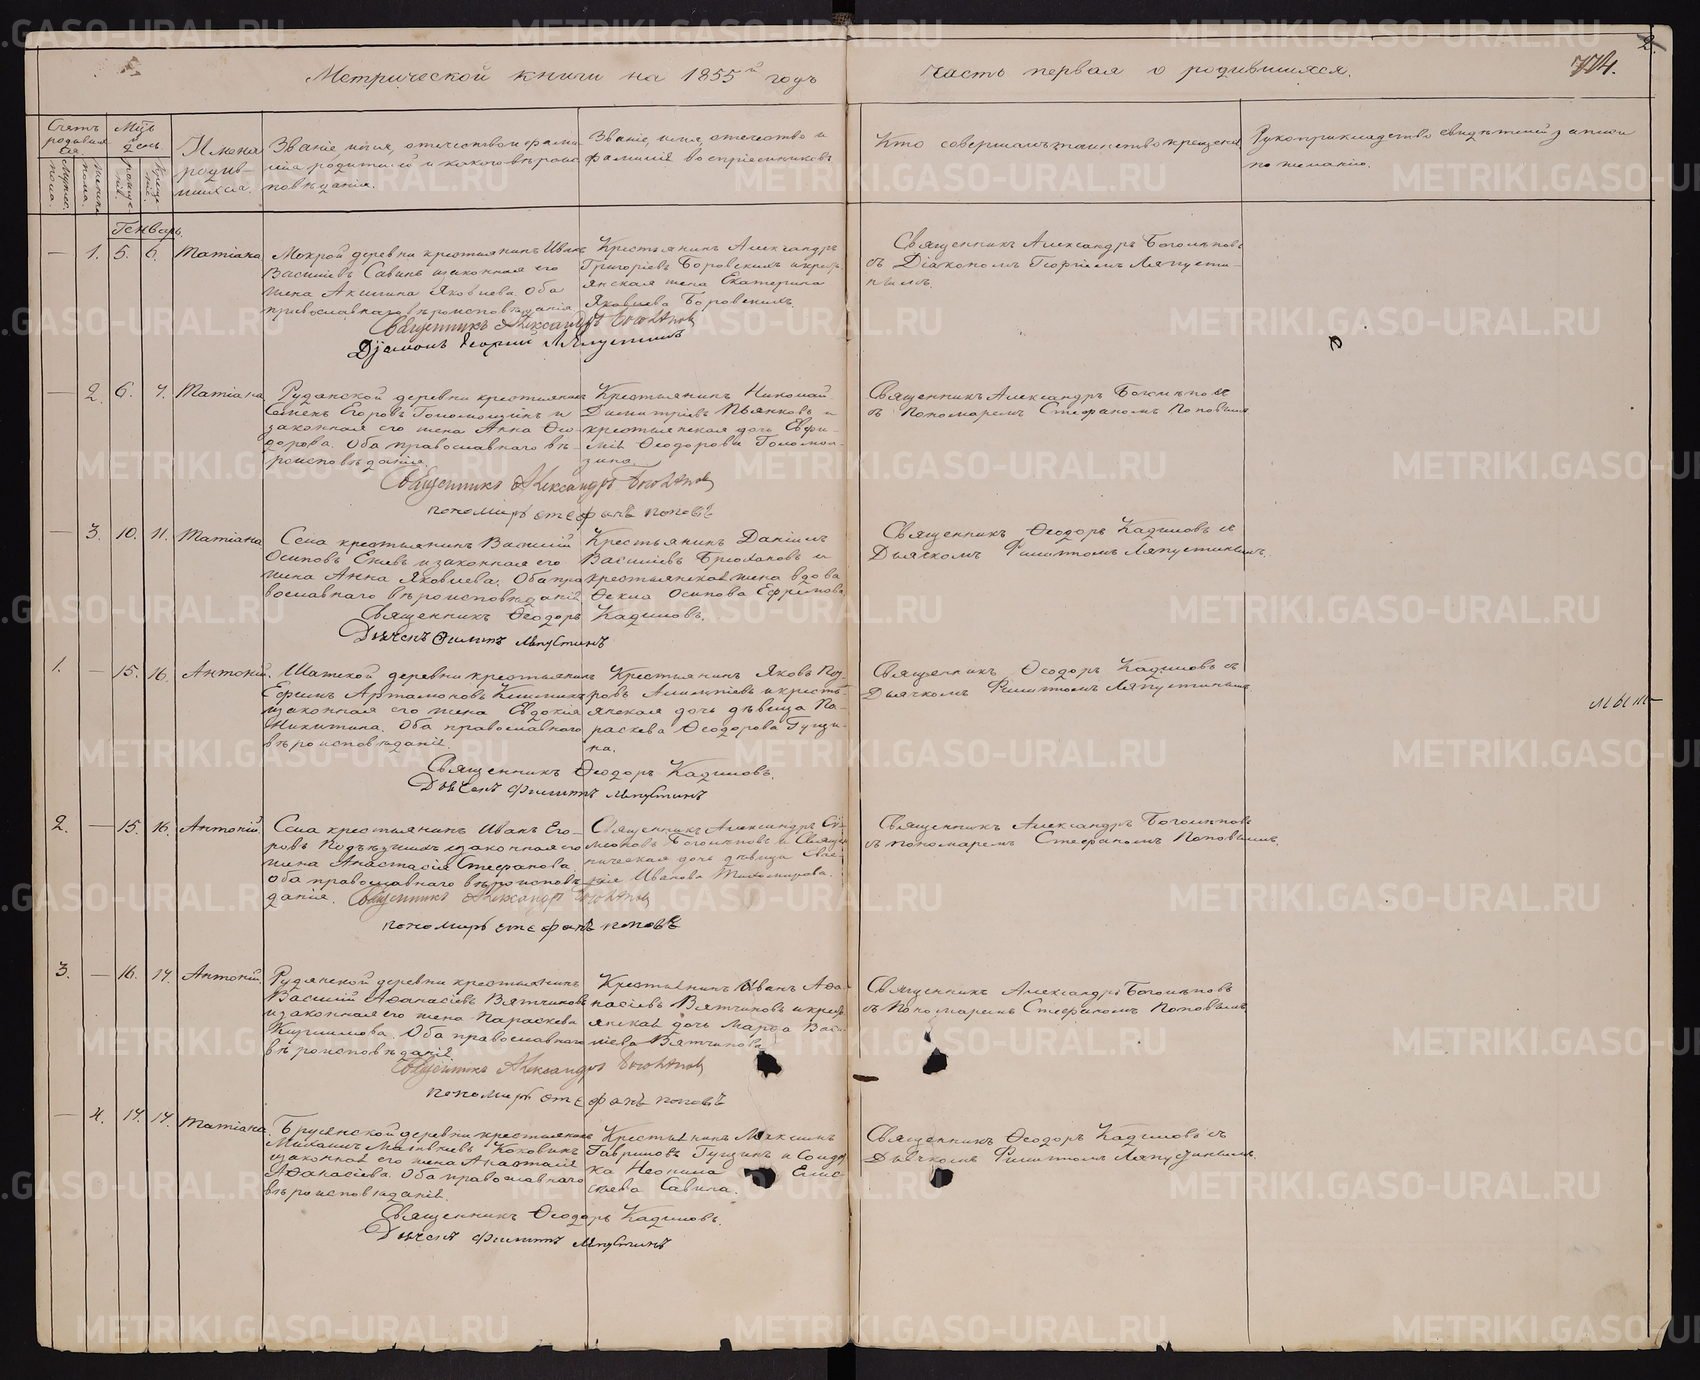 Метрической книги на 1855й годъ
часть первая о родившихся.
774.
2.
Счетъ родившихся
Мужеска пола.
Женска пола.
Мцъ и день
рождения
крещения
Имена родившихся.
Званіе, имя, отчество и фамилія родителей и какого вѣроисповѣданія.
Званіе, имя, отчество и фамилія воспріемниковъ
Кто совершалъ таинство крещенія
Рукоприкладство свидѣтелей записи по желанію.
Генварь
— 1. 5. 6. Татіана
Мокрой деревни крестьянинъ Иванъ
Василіевъ Савинъ и законная его
жена Акилина Яковлева. Оба
православнаго вѣроисповѣданія
Крестьянинъ Александръ
Григоріевъ Боровскихъ и крестьянская жена Екатерина
Яковлева Боровскихъ.
Священникъ Александръ Боголѣповъ
съ Діакономъ Георгіемъ Ляпустинымъ.
Священникъ Александръ Боголѣповъ
Діаконъ Георгій Ляпустинъ
— 2. 6. 7. Татіана
Рудянской деревни крестьянинъ
Семенъ Егоровъ Голомолзинъ и
законная его жена Анна Ѳеодорова. Оба православнаго вѣроисповѣданія
Крестьянинъ Николай
Димитріевъ Пьянковъ и
крестьянская дочь Евфимія Ѳеодорова Голомолзина
Священникъ Александръ Боголѣповъ
съ Пономаремъ Стефаномъ Поповымъ
Священникъ Александръ Боголѣповъ
пономарь стефанъ поповъ
— 3. 10. 11. Татіана
Села крестьянинъ Василій
Осиповъ Елевъ и законная его
жена Анна Яковлева. Оба православнаго вѣроисповѣданія
Крестьянинъ Даніилъ
Василіевъ Брюхановъ и
крестьянская жена вдова
Ѳекла Осипова Ефремова
Священникъ Ѳеодоръ Кадиловъ съ
Дьячкомъ Филиппомъ Ляпустинымъ.
Священникъ Ѳеодоръ Кадиловъ.
Дьячекъ Филиппъ Ляпустинъ
1. — 15. 16. Антоній.
Шатской деревни крестьянинъ
Ефимъ Артамоновъ
законная его жена Евдокія
Никитина. Оба православнаго
вѣроисповѣданія.
Крестьянинъ Яковъ
и крестьянская дочь дѣвица Параскева Ѳеодорова Гущина.
Священникъ Ѳеодоръ Кадиловъ съ
Дьячкомъ Филиппомъ Ляпустинымъ
Священникъ Ѳеодоръ Кадиловъ.
Дьячекъ Филиппъ Ляпустинъ
2. — 15. 16. Антоній.
Села крестьянинъ Иванъ Егоровъ и законная его
жена Анастасія Стефанова
Оба православнаго вѣроисповѣданія.
Священникъ Александръ
Боголѣповъ и Священническая дочь дѣвица
Иванова Тихомирова.
Священникъ Александръ Боголѣповъ
съ пономаремъ Стефаномъ Поповымъ.
Священникъ Александръ Боголѣповъ
пономарь стефанъ поповъ
3. — 16. 17. Антоній.
Рудянской деревни крестьянинъ
Василій Аѳанасіевъ Вятчиновъ
и законная его жена Параскева
Оба православнаго
вѣроисповѣданія.
Крестьянинъ Иванъ Аѳанасіевъ Вятчиновъ и крестьянская дочь Марѳа Василіева Вятчинова
Священникъ Александръ Боголѣповъ
съ Пономаремъ Стефаномъ Поповымъ
Священникъ Александръ Боголѣповъ
пономарь стефанъ поповъ
— 4. 17. 17. Татіана.
Брусянской деревни крестьянинъ
Михаилъ Матвѣевъ Коковинъ
законная его жена Анастасія
Аѳанасіева. Оба православнаго
вѣроисповѣданія.
Крестьянинъ Максимъ
Гавриловъ Гущинъ и
Савина.
Священникъ Ѳеодоръ Кадиловъ съ
Дьячкомъ Филиппомъ Ляпустинымъ.
Священникъ Ѳеодоръ Кадиловъ.
Дьячекъ Филиппъ Ляпустинъ
METRIKI.GASO-URAL.RU